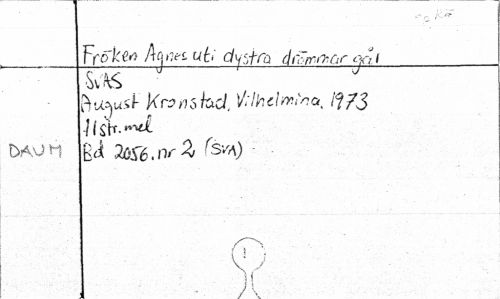 Fröken Agnes uti dystra drömmar går
SVAS
August Kronstad, Vilhelmina, 1973
11str. mel
DAUM Bd 2056. nr 2 (SVA)